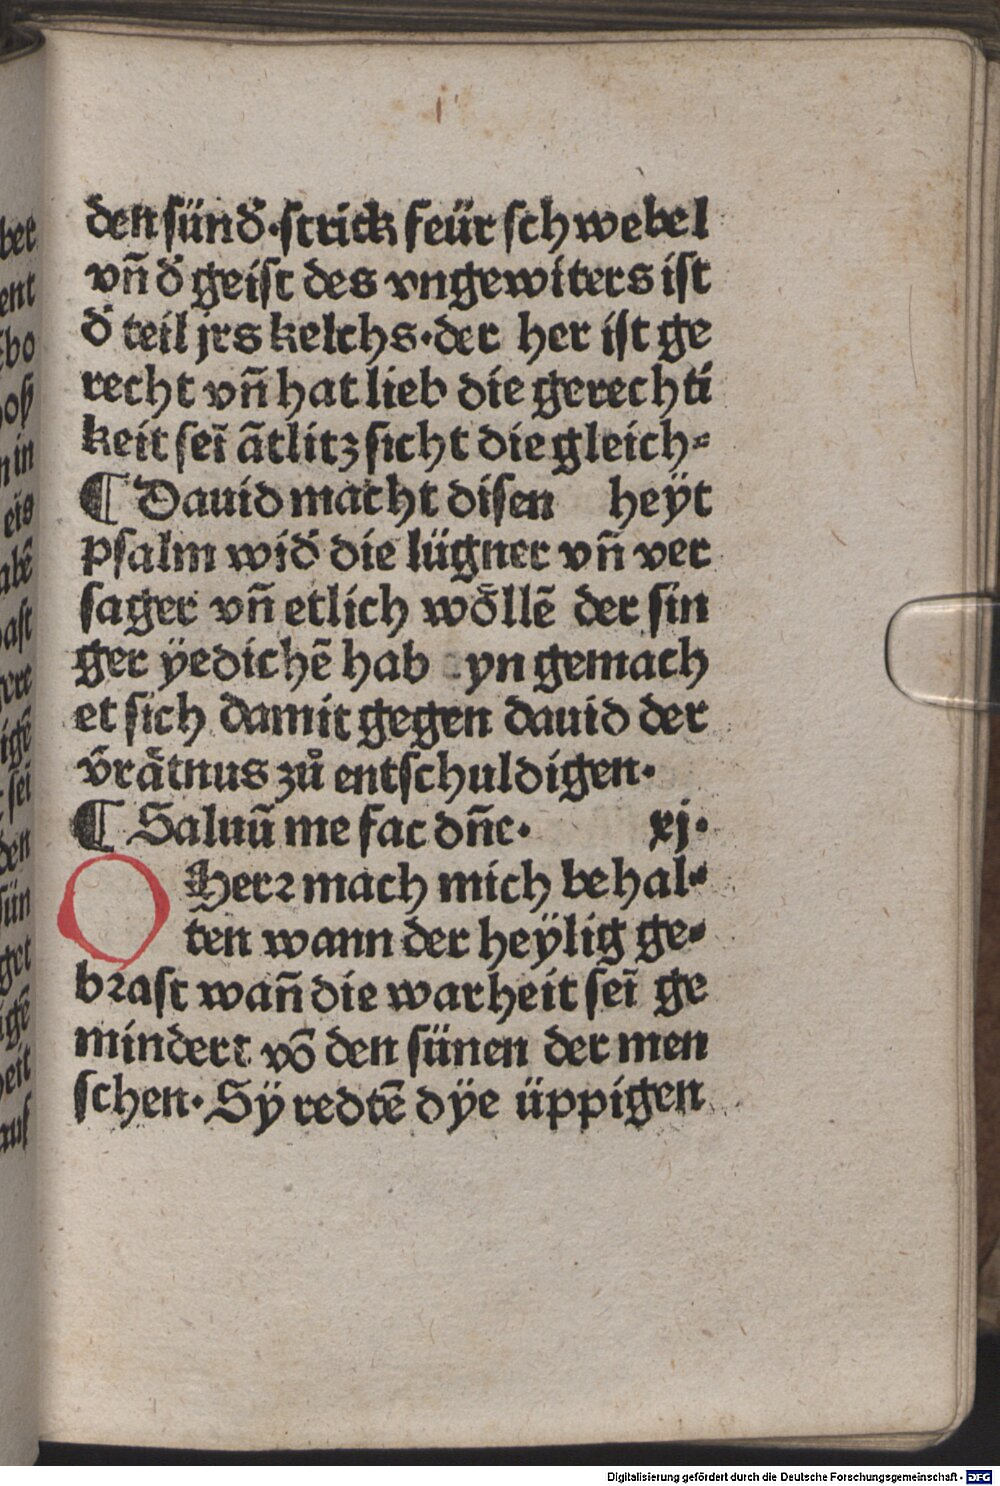 den sünd̾·strick feür schwebel
vn̄ d̾ geist des vngewiters ist
d̾ teil jrs kelchs·der her ist ge
recht vn̄ hat lieb die gerechti
keit sei̅ a̅tlitz sicht die gleich⸗
¶ Dauid macht disen heÿt
psalm wid̾ die lügner vn̄ ver
sager vn̄ etlich woͤllē der sin
ger ÿedichē hab yn gemach
et sich damit gegen dauid der
v̾raͤtnus zuͦ entschuldigen·
¶ Saluū me fac dn̄e· xj·
O Herꝛ mach mich behal⸗
ten wann der heÿlig ge⸗
bꝛast wan̄ die warheit sei̅ ge
mindert vō den sünen der men
schen· Sÿ redtē dÿe üppigen
Digitalisierung gefördert durch die Deutsche Forschungsgemeinschaft · DFG